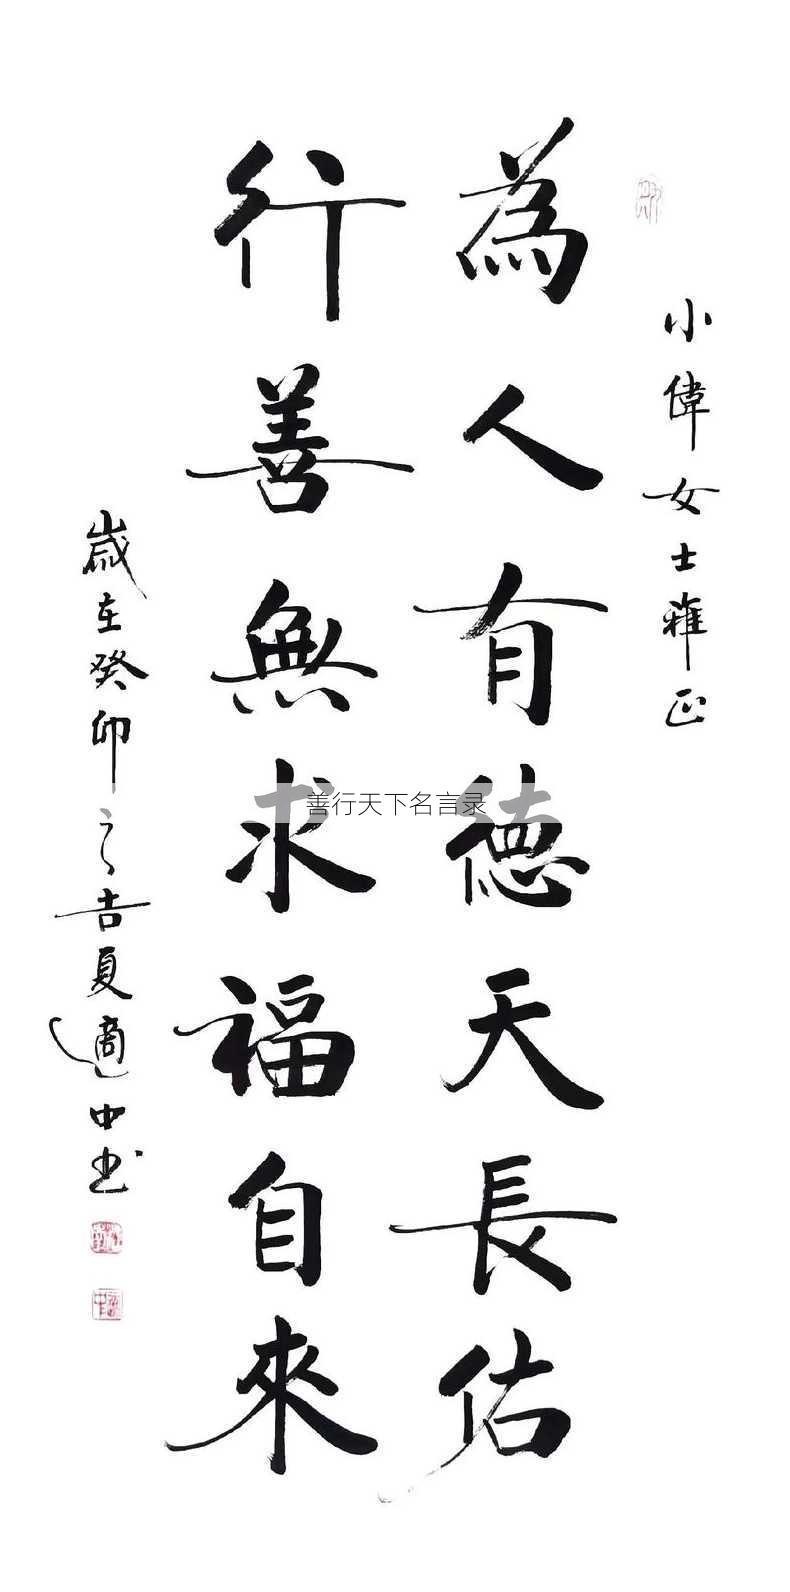 小偉女士雅正
為人有德天長佑
行善無求福自來
歲在癸卯之吉夏適中书
善行天下名言录